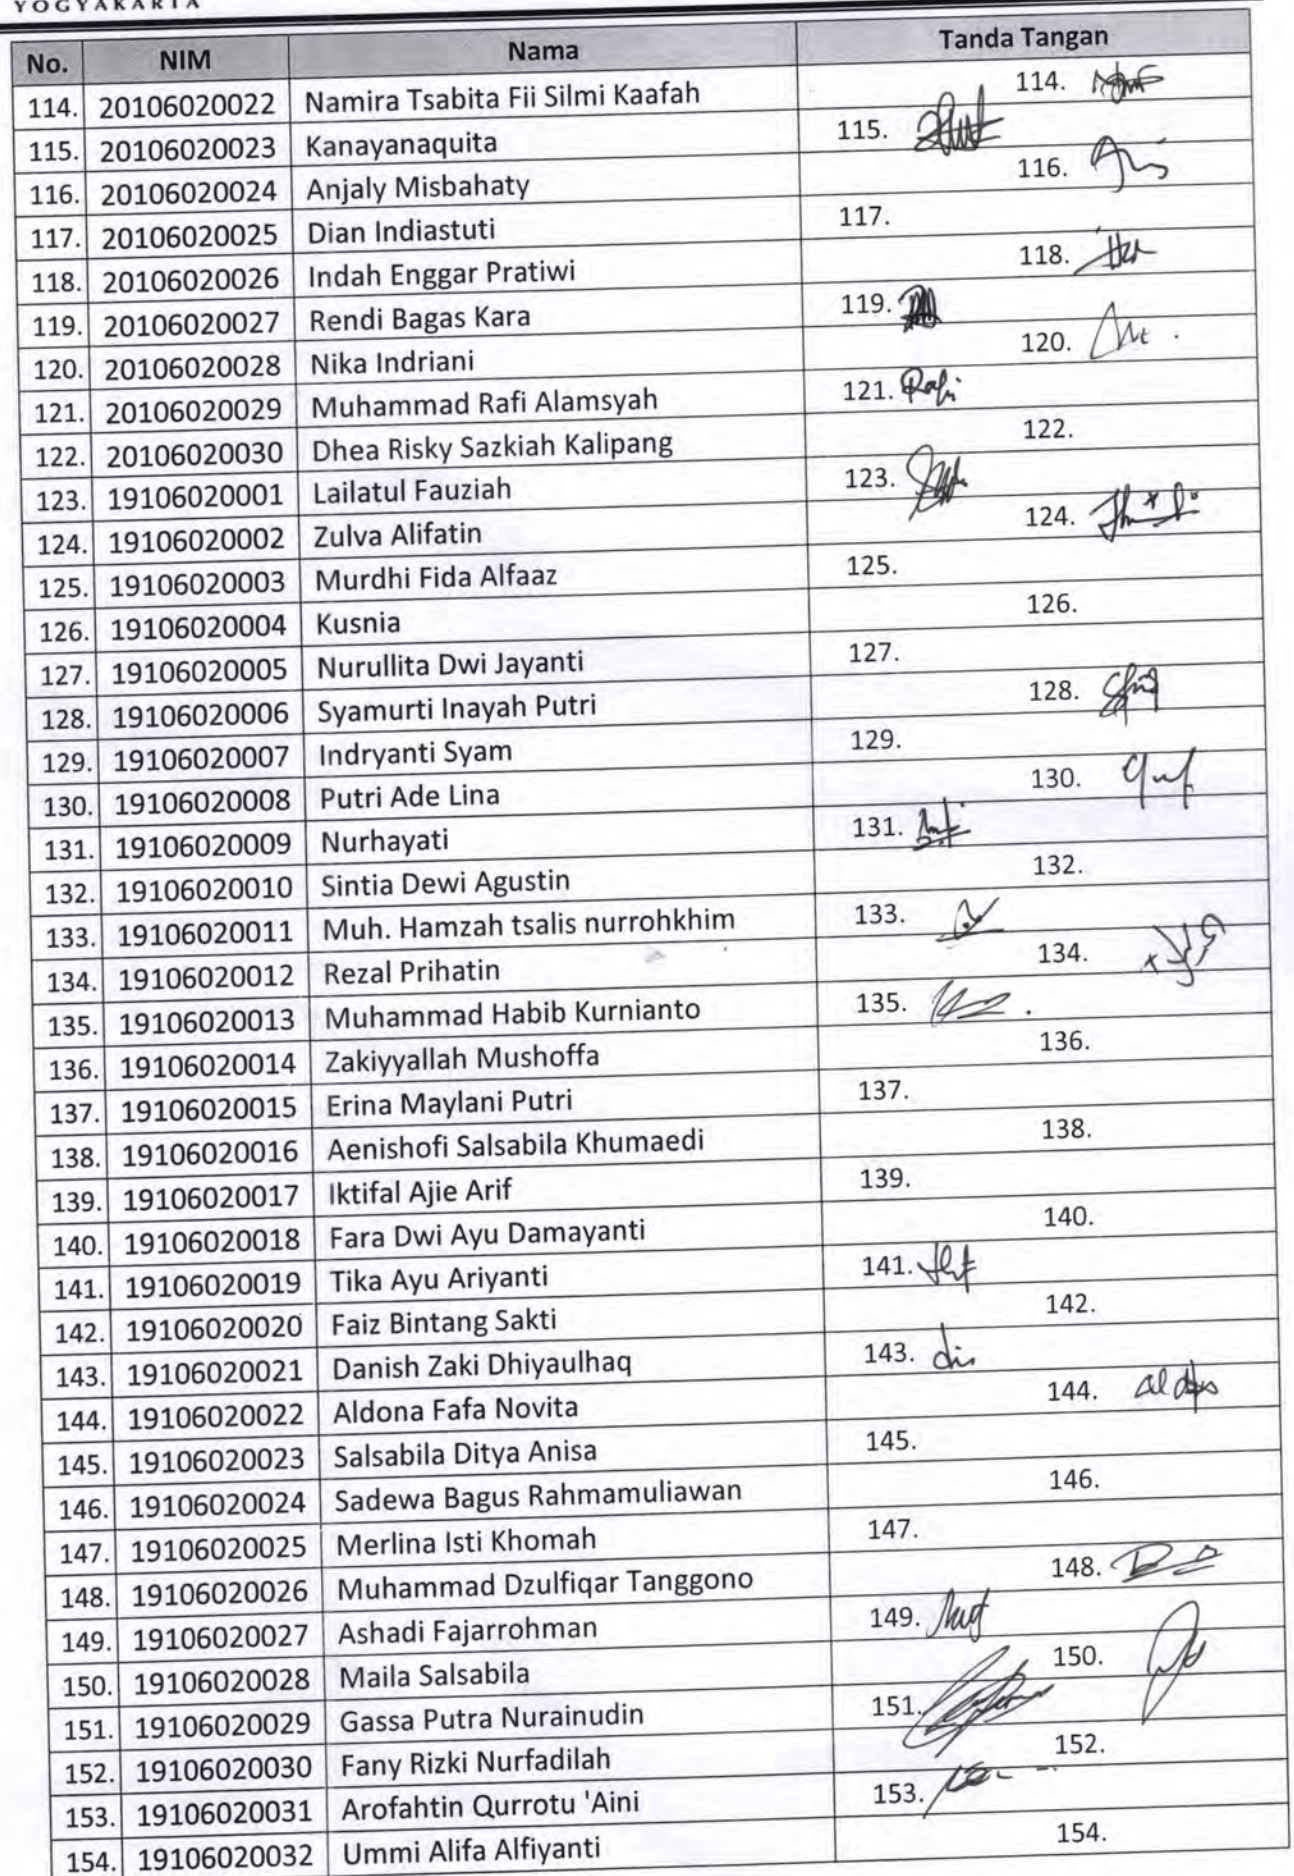 YOGYAKARTA
No. NIM Nama Tanda Tangan
114. 20106020022 Namira Tsabita Fii Silmi Kaafah 114.
115. 20106020023 Kanayanaquita 115.
116. 20106020024 Anjaly Misbahaty 116.
117. 20106020025 Dian Indiastuti 117.
118. 20106020026 Indah Enggar Pratiwi 118.
119. 20106020027 Rendi Bagas Kara 119.
120. 20106020028 Nika Indriani 120.
121. 20106020029 Muhammad Rafi Alamsyah 121. Rafi
122. 20106020030 Dhea Risky Sazkiah Kalipang 122.
123. 19106020001 Lailatul Fauziah 123.
124. 19106020002 Zulva Alifatin 124.
125. 19106020003 Murdhi Fida Alfaaz 125.
126. 19106020004 Kusnia 126.
127. 19106020005 Nurullita Dwi Jayanti 127.
128. 19106020006 Syamurti Inayah Putri 128.
129. 19106020007 Indryanti Syam 129.
130. 19106020008 Putri Ade Lina 130.
131. 19106020009 Nurhayati 131.
132. 19106020010 Sintia Dewi Agustin 132.
133. 19106020011 Muh. Hamzah tsalis nurrohkhim 133.
134. 19106020012 Rezal Prihatin 134.
135. 19106020013 Muhammad Habib Kurnianto 135.
136. 19106020014 Zakiyyallah Mushoffa 136.
137. 19106020015 Erina Maylani Putri 137.
138. 19106020016 Aenishofi Salsabila Khumaedi 138.
139. 19106020017 Iktifal Ajie Arif 139.
140. 19106020018 Fara Dwi Ayu Damayanti 140.
141. 19106020019 Tika Ayu Ariyanti 141.
142. 19106020020 Faiz Bintang Sakti 142.
143. 19106020021 Danish Zaki Dhiyaulhaq 143.
144. 19106020022 Aldona Fafa Novita 144.
145. 19106020023 Salsabila Ditya Anisa 145.
146. 19106020024 Sadewa Bagus Rahmamuliawan 146.
147. 19106020025 Merlina Isti Khomah 147.
148. 19106020026 Muhammad Dzulfiqar Tanggono 148.
149. 19106020027 Ashadi Fajarrohman 149.
150. 19106020028 Maila Salsabila 150.
151. 19106020029 Gassa Putra Nurainudin 151.
152. 19106020030 Fany Rizki Nurfadilah 152.
153. 19106020031 Arofahtin Qurrotu 'Aini 153.
154. 19106020032 Ummi Alifa Alfiyanti 154.